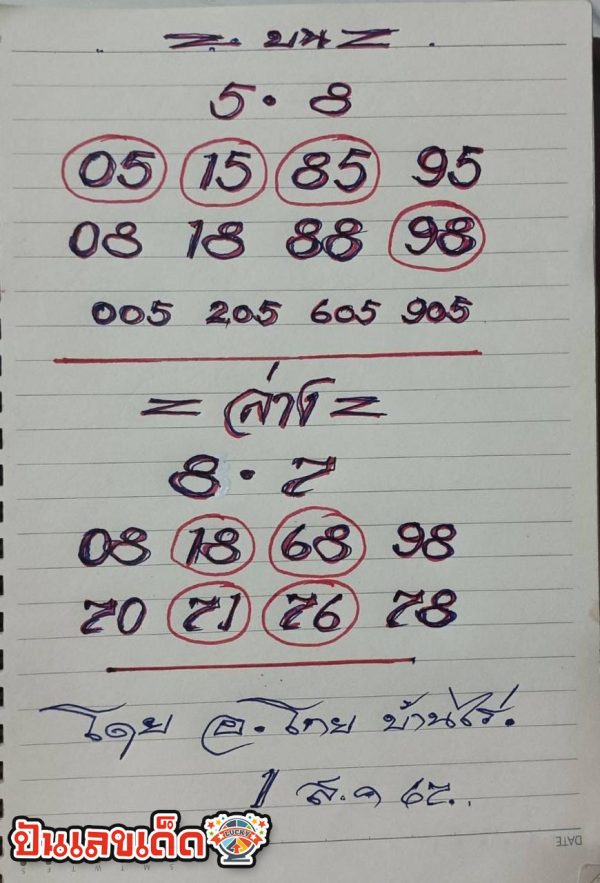 = บน =
5 · 8
05 15 85 95
08 18 88 98
005 205 605 905
= ล่าง =
8 · 7
08 18 68 98
70 71 76 78
โดย อ. โทย บ้านไร่.
1 ส.ค 67..
ปันเลขเด็ด LUCKY
DATE